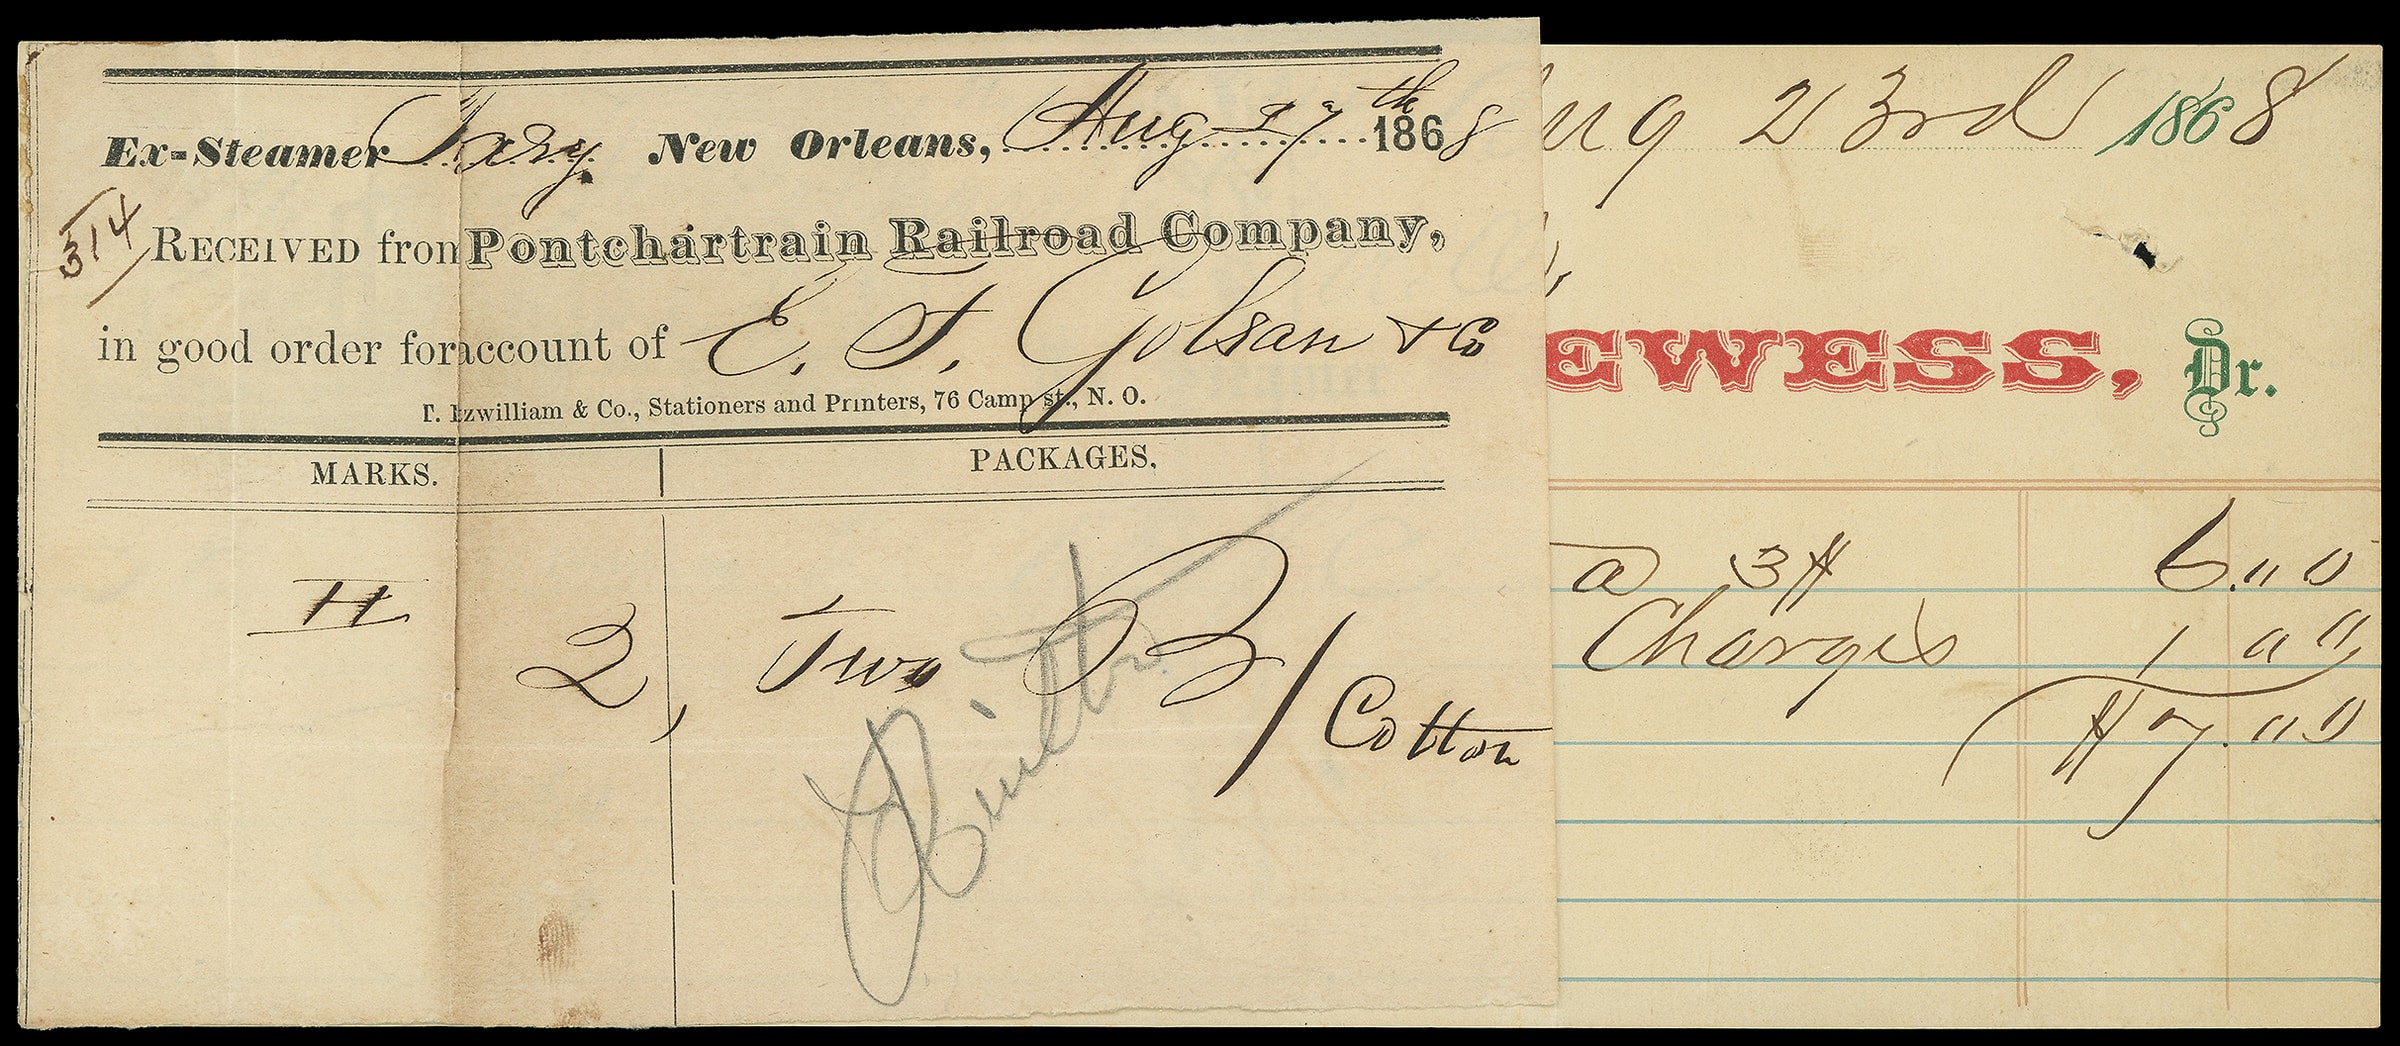 Ex-Steamer New Orleans, Aug 27th 1868
314
RECEIVED from Pontchartrain Railroad Company,
in good order for account of E. T. Golsan & Co
zwilliam & Co., Stationers and Printers, 76 Camp st., N. O.
MARKS. PACKAGES.
H 2, Two B/ Cotton
ug 23rd 1868
EWESS, Dr.
a 3$ 6.00
Charges 1 00
$7.00